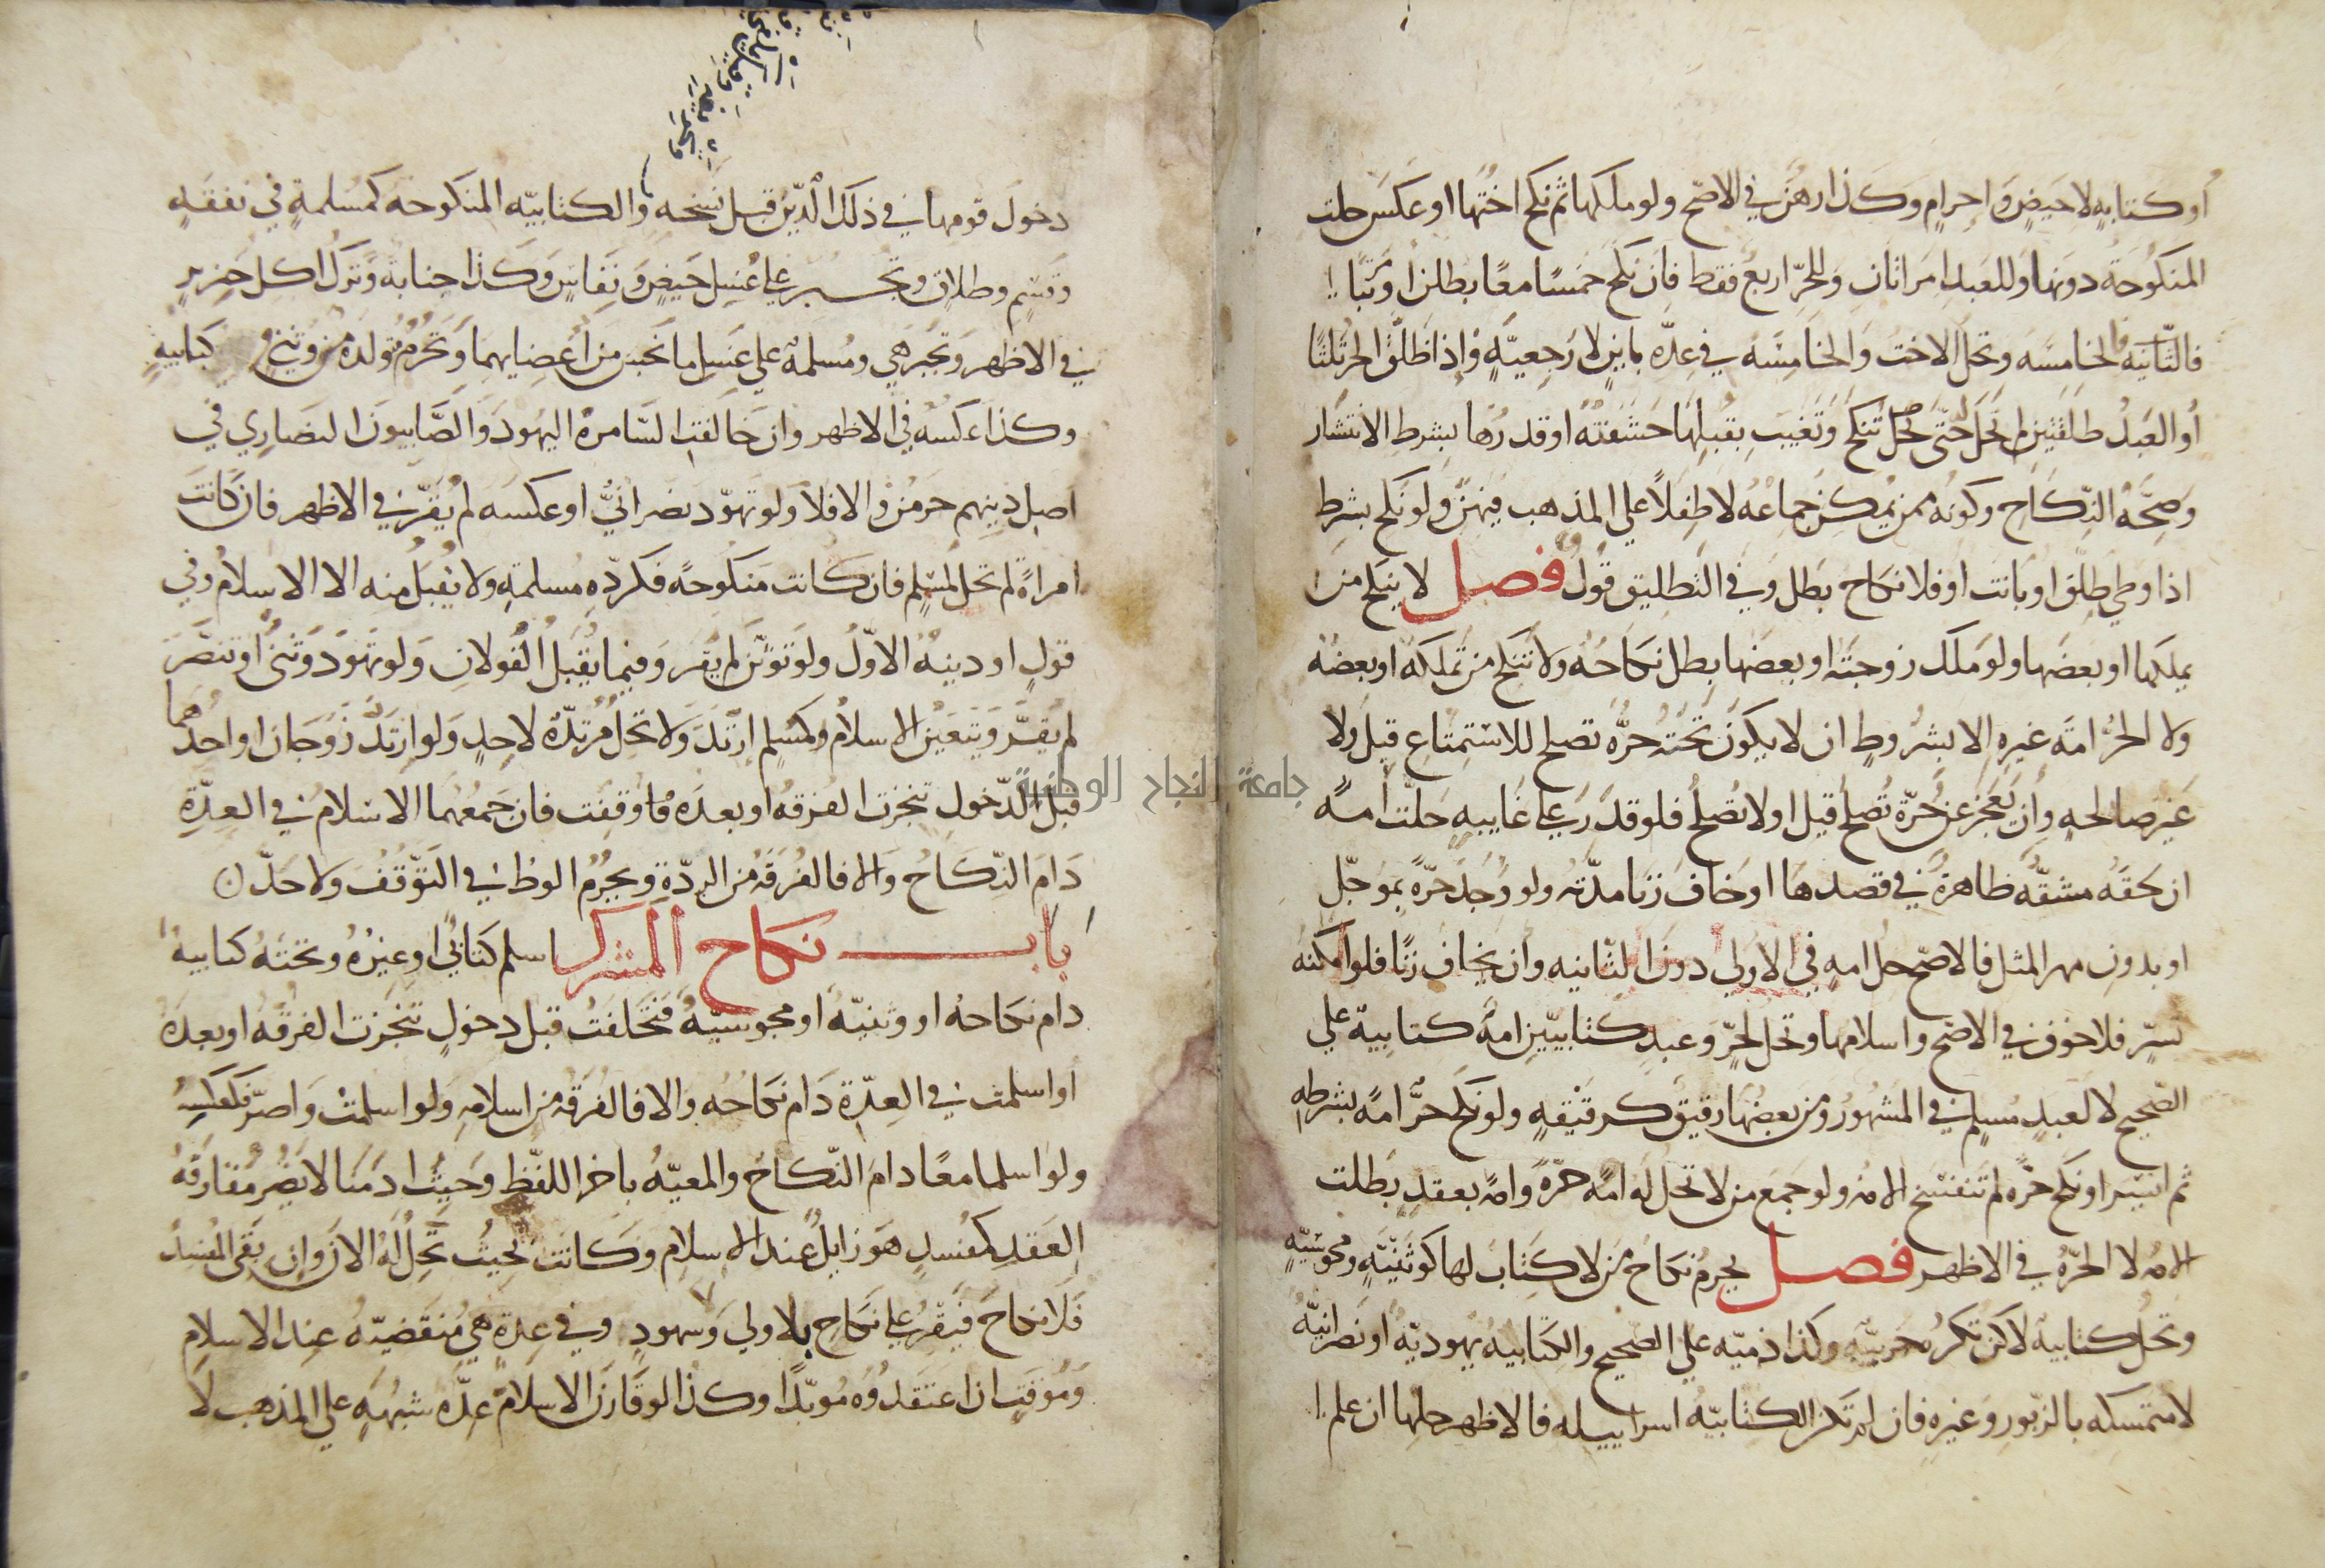 أو كتابه لا حيض واحرام وكذا رهن في الاصح ولو ملكها ثم نكح اختها او عكس حلت
المنكوحة دونها وللعبد امراتان وللحر اربع فقط فان نكح خمسا معا بطلن او مرتبا
فالخامسه وتحل الاخت والخامسه في عده باين لا رجعية واذا طلق الحر ثلثا
أو العبد طلقتين لم تحل له حتى تنكح وتغيب بقبلها حشفته او قدرها بشرط الانتشار
وصحة النكاح وكونه ممن يمكن جماعه لا طفلا على المذهب فيهن ولو نكح بشرط
اذا وطي طلق او بانت او فلا نكاح بطل وفي التطليق قول فصل لا ينكح من
يملكها او بعضها ولو ملك زوجته او بعضها بطل نكاحه ولا تنكح من تملكه او بعضه
ولا الحر امة غيره الا بشروط ان لا يكون تحته حره تصلح للاستمتاع قيل ولا
غير صالحه وان يعجز عن حرة تصلح قيل او لا تصلح فلو قدر على غايبه حلت امة
ان لحقه مشقه ظاهرة في قصدها او خاف زنا مدته ولو وجد حرة بموجل
او بدون مهر المثل فالاصح حل امه في الاولى دون الثانيه وان يخاف زنا فلو امكنه
تسر فلا خوف في الاصح واسلامها وتحل لحر وعبد كتابيين امة كتابية على
الصحيح لا لعبد مسلم في المشهور ومن بعضها رقيق كرقيقه ولو نكح حر امة بشرطه
ثم ايسر او نكح حره لم تنفسخ الامه ولو جمع من لا تحل له امة حرة وامة بعقد بطلت
الامه لا الحره في الاظهر فصل يحرم نكاح من لا كتاب لها كوثنية ومجوسية
وتحل كتابية لاكن تكره حربية وكذا ذميه على الصحيح والكتابيه يهودية او نصرانية
لا متمسكه بالزبور وغيره فان لم تكن الكتابيه اسراييليه فالاظهر حلها ان علم
دخول قومها في ذلك الدين قبل نسخه والكتابيه المنكوحه كمسلمة في نفقه
وقسم وطلاق وتجبر على غسل حيض ونفاس وكذا جنابة وترك اكل خنزير
في الاظهر وتجبر هي ومسلمه على غسل ما نجس من اعضايهما وتحرم متولده من وثني و كتابيه
وكذا عكسه في الاظهر وان خالفت السامره اليهود والصابيون النصاري في
اصل دينهم حرمن والا فلا ولو تهود نصراني او عكسه لم يقر في الاظهر فان كانت
امراة لم تحل لمسلم فان كانت منكوحة فكرده مسلمة ولا يقبل منه الا الاسلام وفي
قول او دينه الاول ولو توثن لم يقر وفيما يقبل القولان ولو تهود وثني او تنصر
لم يقر ويتعين الاسلام كمسلم ارتد ولا تحل مرتدة لاحد ولو ارتد زوجان او احدهما
قبل الدخول تنجزت الفرقه او بعده وقفت فان جمعهما الاسلام في العدة
دام النكاح والا فالفرقه من الردة ويحرم الوطا في التوقف ولا حد
باب نكاح المشرك اسلم كتابي او غيره وتحته كتابية
دام نكاحه او وثنيه او مجوسيه فتخلفت قبل دخول تنجزت الفرقه او بعده
واسلمت في العدة دام نكاحه والا فالفرقه من اسلامه ولو اسلمت واصر فكعكسه
ولو اسلما معا دام النكاح والمعيه باخر اللفظ وحيث ادمنا لا يضر مقارنة
العقد لمفسد هو زايل عند الاسلام وكانت بحيث تحل له الان وان بقى المفسد
فلا نكاح فيقر على نكاح بلا ولي وشهود وفي عدة هي منقضيه عند الاسلام
وموقت ان اعتقدوه موبدا وكذا لو قارن الاسلام عدة شبهه على المذهب لا
جامعة النجاح الوطنية